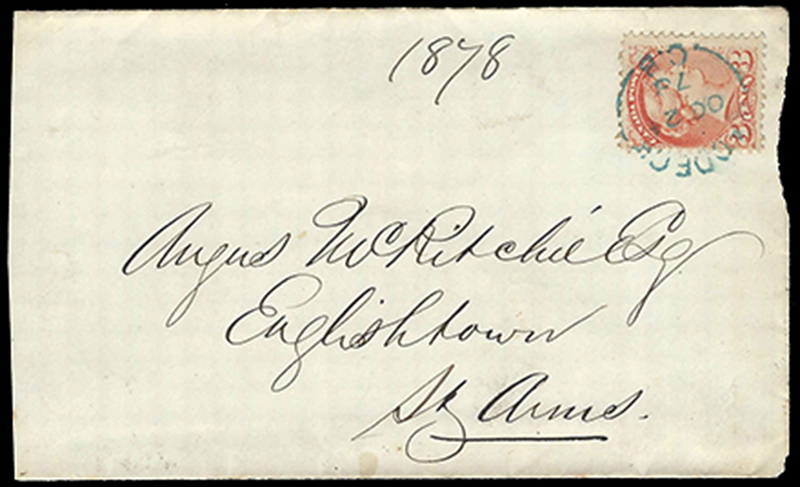 1878
Angus McRitchie Esq
Englishtown
St Anns.
OC 2
C.B